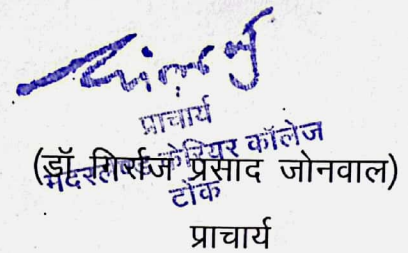 प्राचार्य
मदरलैण्ड कैरियर कॉलेज
(डॉ. गिर्राज प्रसाद जोनवाल)
टोंक
प्राचार्य